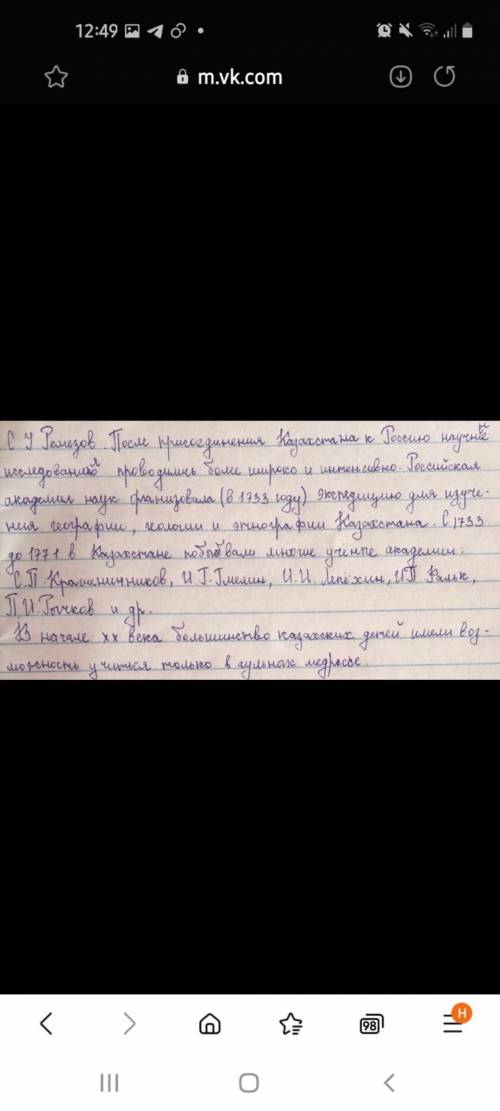 12:49
m.vk.com
С У Ремезов. После присоединения Казахстана к Россию научные
исследования проводились более широко и интенсивно. Российская
академия наук организовала (в 1733 году) экспедицию для изуче-
ния географии, геологии и этнографии Казахстана. С 1733
до 1771 в Казахстане побывали многие учёные академии:
С.П. Крашенничников, И Г. Гмелин, И.И. Лепёхин, И П Фальк,
П.И. Рычков и др.
В начале хх века большинство казахских детей имели воз-
можность учиться только в медресе.
98
Н